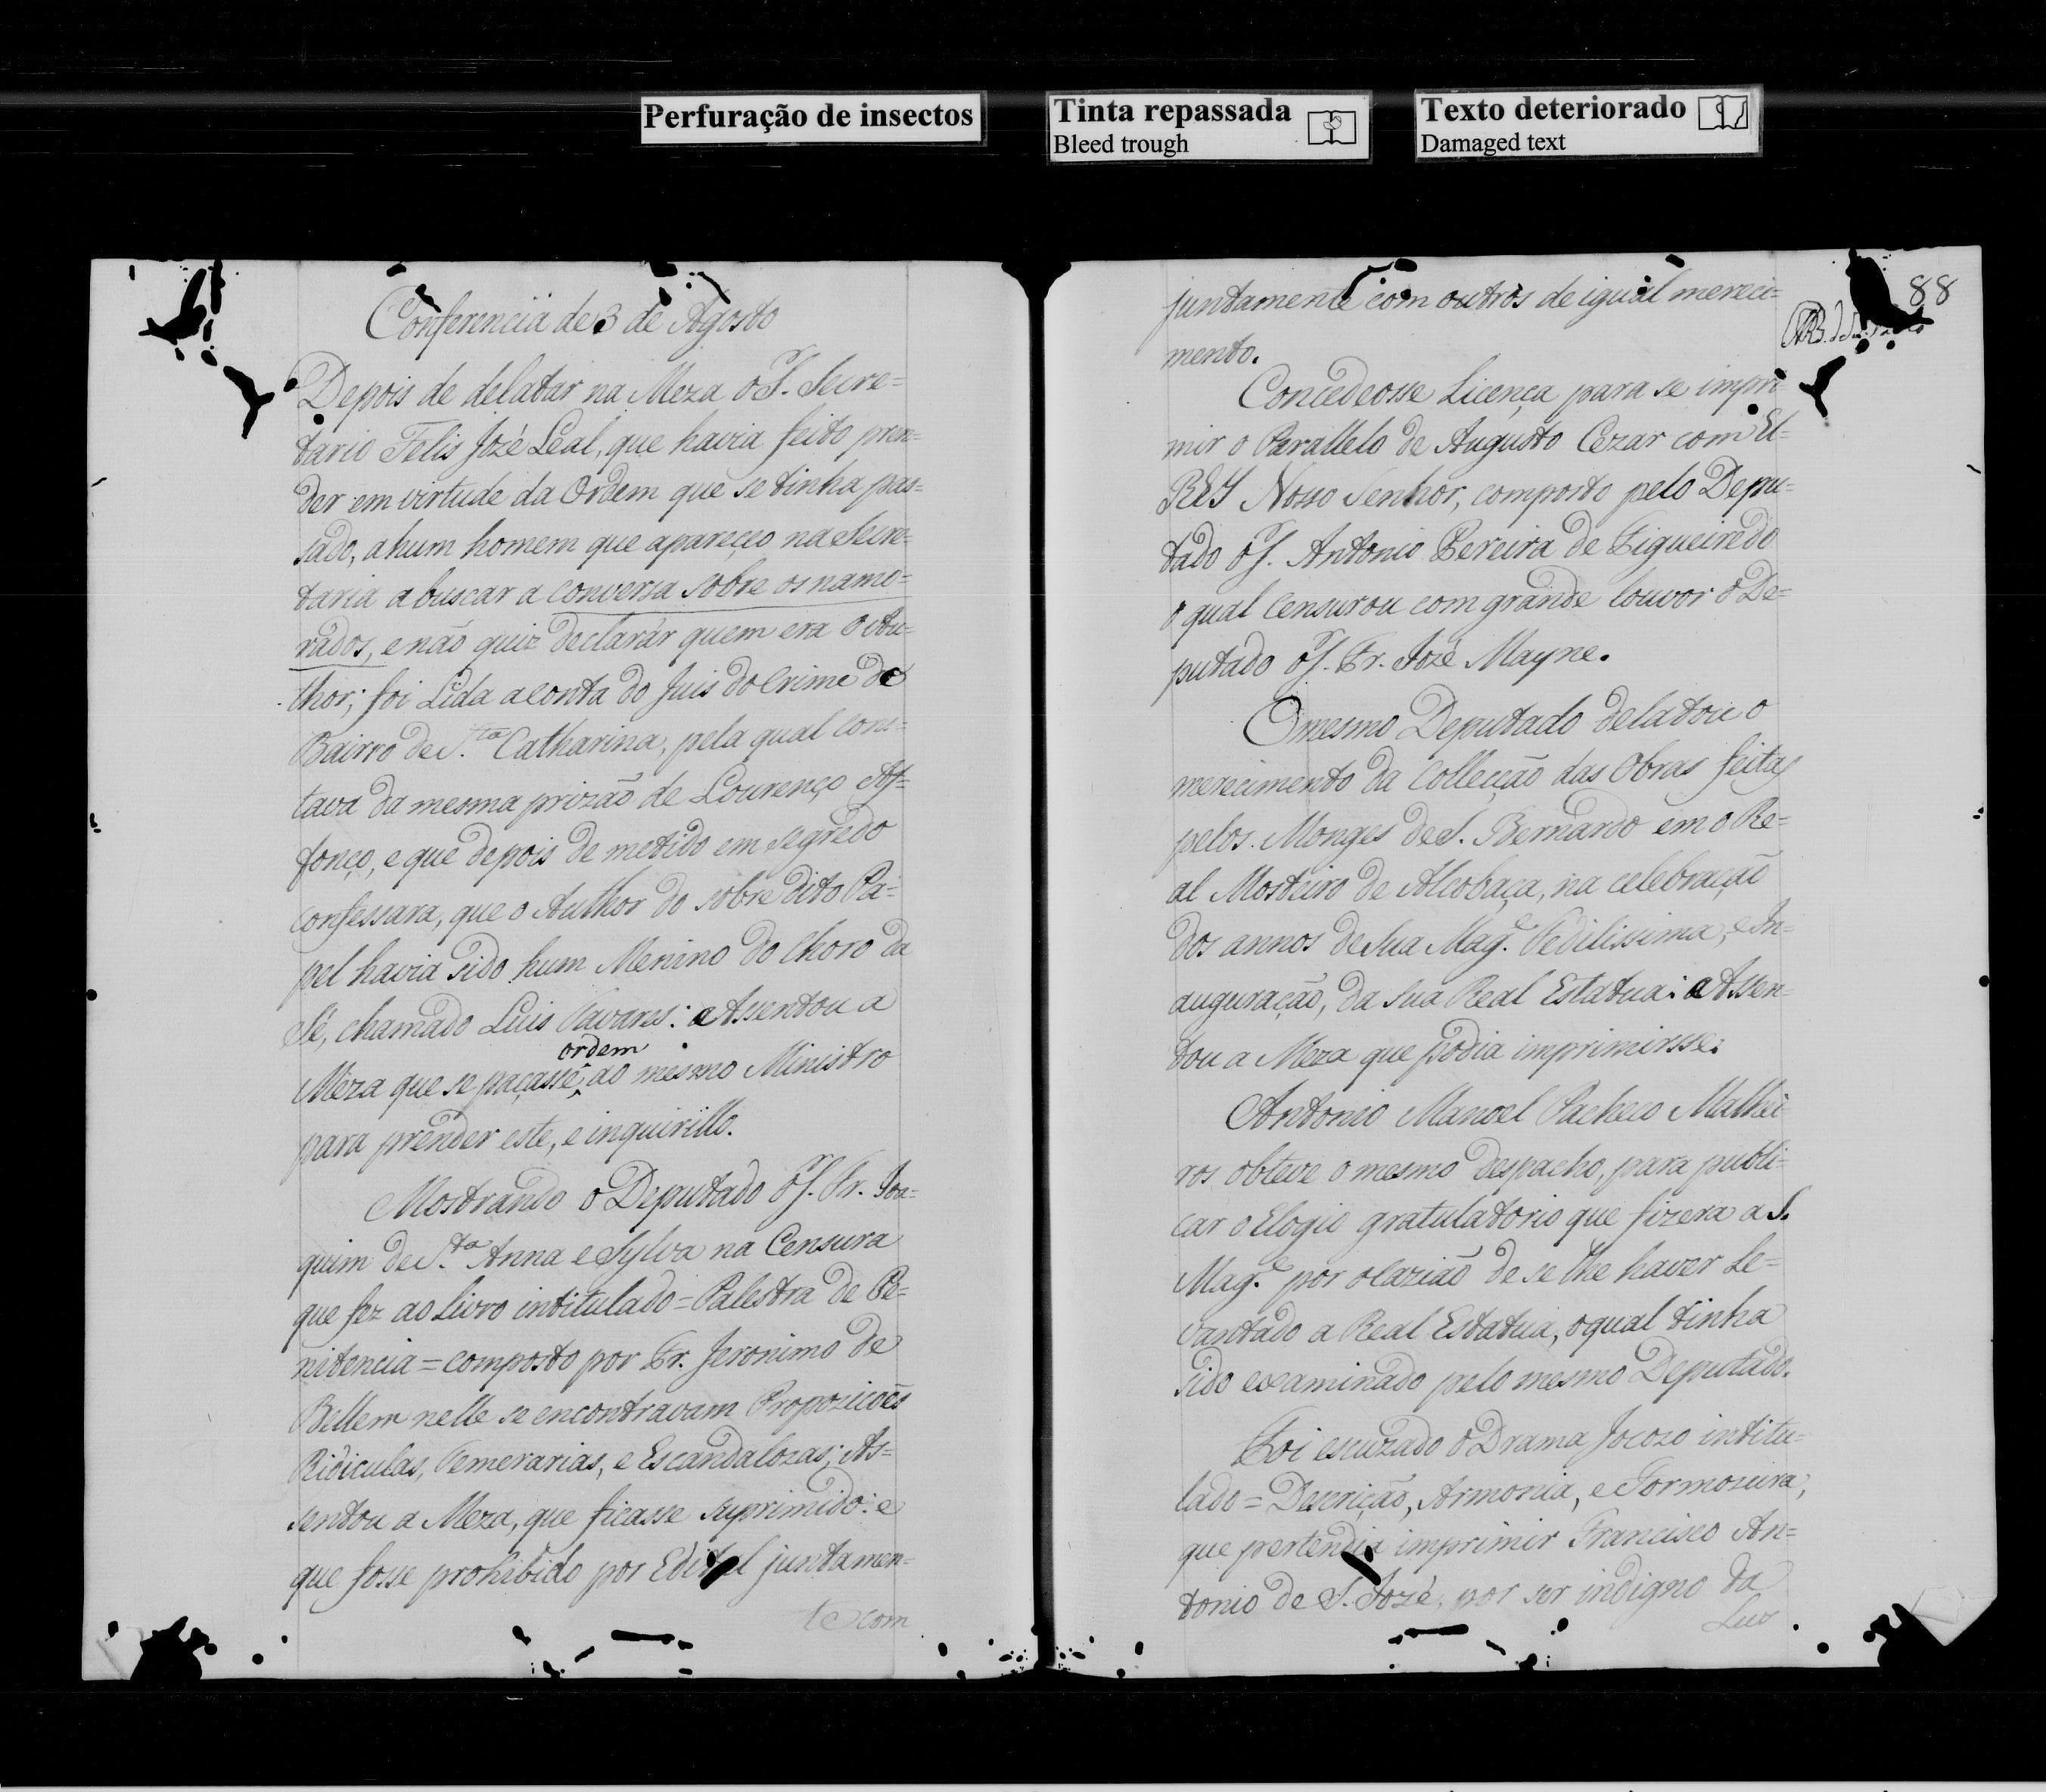 Perfuração de insectos
Tinta repassada
Bleed trough
Texto deteriorado
Damaged text
Conferencia de 3 de Agosto
Depois de delatar na Meza o P. Secre=
tario Felis Jozé Leal, que havia feito pren=
der em virtude da Ordem que se tinha pas=
sado, a hum homem que apareçeo na Secre=
taria a buscar a conversa sobre os namo=
rados, e não quiz declarár quem era o Au=
thor; foi Lida a conta do Juis do Crime do
Bairro de S.ta Catharina, pela qual cons=
tava da mesma prizaõ de Lourenço Af=
fonço, e que depois de metido em segredo
confessara, que o Author do sobre dito Pa=
pel havia sido hum Menino do Choro da
Sé, chamado Luis Tavares: e Assentou a
ordem
Meza que se paçasse ao mesmo Ministro
para prender este, e inquirillo.
Mostrando o Deputado o P. Fr. Joa=
quim de S.ta Anna e Sylva na Censura
que fez ao Livro intitulado = Palestra de Pe=
nitencia = composto por Fr. Jeronimo de
Bellem nelle se encontravam Propoziçoẽs
Ridiculas, Temerarias, e Escandalozas; As=
sentou a Meza, que ficasse suprimido: e
que fosse prohibido por Edital juntamen=
te com
88
juntamente com outros de igual mereci=
mento.
Concedeosse Licença para se impri
mir o Parallelo de Augusto Cezar com El=
REY Nosso Senhor, composto pelo Depu=
tado o P. Antonio Pereira de Figueiredo
o qual censurou com grande louvor o De=
putado o P. Fr. Jozé Mayne.
O mesmo Deputado delatou o
merecimento da Collecção das Obras feitas
pelos Monges de S. Bernardo em o Re=
al Mosteiro de Alcobaça, na celebração
dos annos de Sua Mag.e Fedilissima, e In=
auguração, da sua Real Estatua: e Assen=
tou a Meza que podia imprimirsse.
Antonio Manoel Pacheco Malhei
ros obteve o mesmo despacho, para publi=
car o Elogio gratulatorio que fizera a S.
Mag.e por ocaziaõ de se lhe haver Le=
vantado a Real Estatua, o qual tinha
sido examinado pelo mesmo Deputado.
Foi escuzado o Drama Jocozo intitu=
lado = Descrição, Armonia, e Formozura,
que pertendia imprimir Francisco An=
tonio de S. Jozé, por ser indigno da
Luz